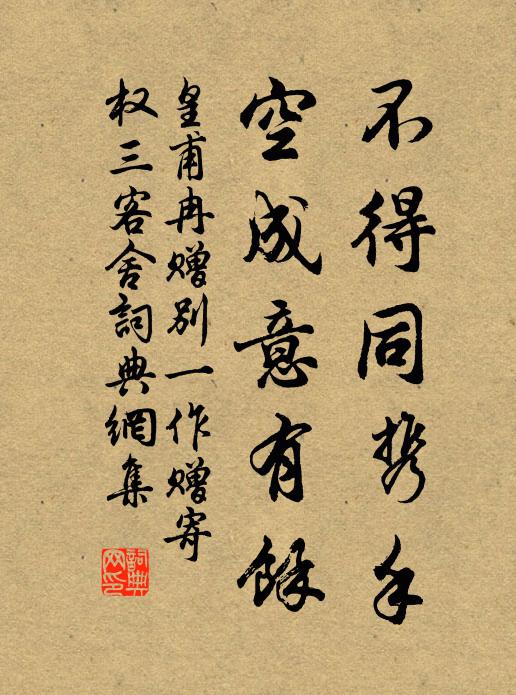 不得同携手
空成意有餘
皇甫冉赠别一作赠寄
权三客舍詞典網集
詞典
网印